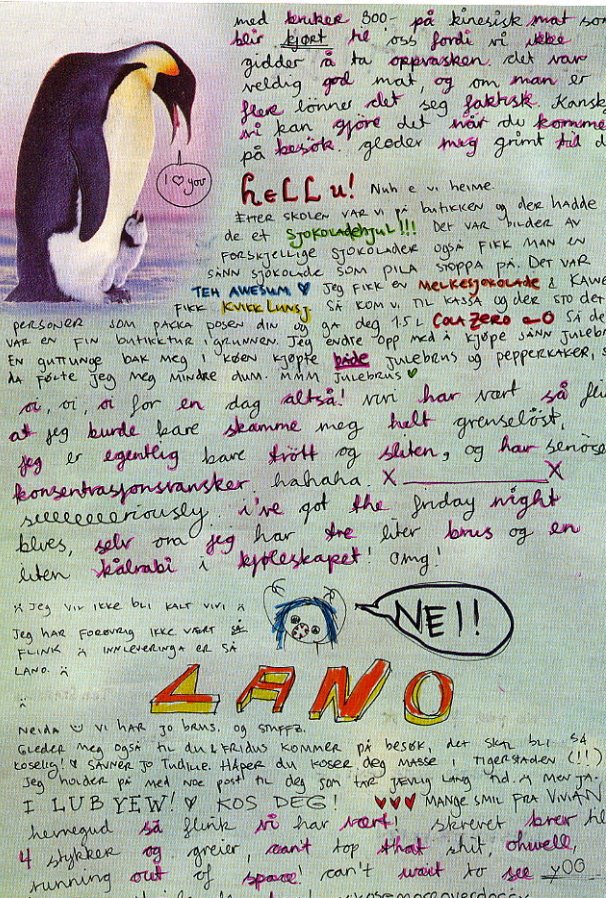 med bruker 300- på kinesisk mat som
blir kjørt te oss fordi vi ikke
gidder å ta oppvasken. det var
veldig god mat, og om man er
flere lönner det seg faktisk. Kansk
vi kan gjöre det når du komme
på besök. gleder meg grimt til d
I ♡ you
hELLu! Nuh e vi heime.
Etter skolen var vi på butikken og der hadde
de et SJOKOLADEHJUL!!! Det var bilder av
forskjellige sjokolader også fikk man en
sånn sjokolade som pila stoppa på. Det var
TEH AWESUM ♥ Jeg fikk en MELKESJOKOLADE & Kawe
fikk KVIKK LUNSJ. Så kom vi til kassa og der sto det
personer som pakka posen din og ga deg 1.5 L COLA ZERO Så de
var en fin butikktur i grunnen. Jeg endte opp med å kjøpe sånn julebr
En guttunge bak meg i køen kjøpte både julebrus og pepperkaker, s
da følte jeg meg mindre dum. mmm julebrus ♥
oi, oi, oi for en dag altså! vivi har vært så fli
at jeg burde bare skamme meg helt grenselöst,
jeg er egentlig bare trött og sliten, og har seriöse
konsentrasjonsvansker. hahaha. X__________X
seeeeeeeriously. i've got the friday night
blues, selv om jeg har tre liter brus og en
liten kålrabi i kjöleskapet! omg!
Jeg vil ikke bli kalt vivi
NEI!
Jeg har forøvrig ikke vært så
flink å innleveringa er så
lano.
LANO
Neida vi har jo brus. og stuffz.
Gleder meg også til du & Fridus kommer på besøk, det skal bli så
koselig! Savner jo Tudilie. Håper du koser deg masse i Tigerstaden (!!)
Jeg holder på med noe post til deg som tar jævlig lang tid. Men ja.
I LUB YEW! ♥ KOS DEG! ♥♥♥ MANGE SMIL FRA VIVIAN
herregud så flink vi har vært! skrevet brev te
4 stykker og greier, can't top that shit, ohwell,
running out of space! can't wait to see yOO